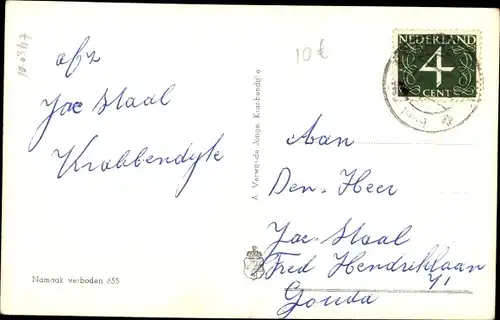 10.0347
afz
Jac Staal
Krabbendyke
Namaak verboden 655
A. Verwijs-de Jonge, Krabbendijke
10 €
NEDERLAND
4
CENT
Aan
Den Heer
Jac. Staal
Fred Hendriklaan
71
Gouda